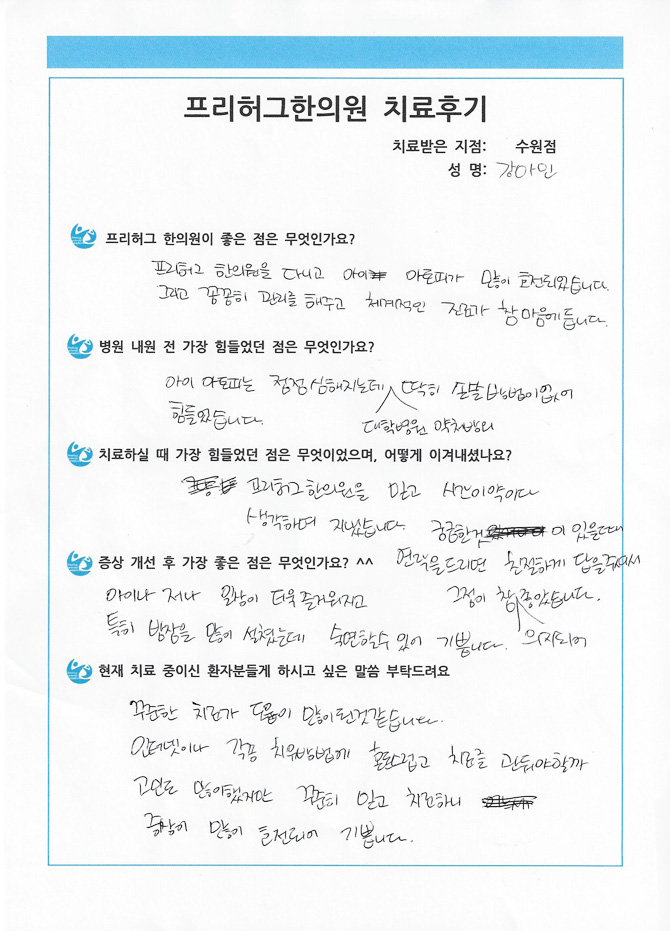 프리허그한의원 치료후기
치료받은 지점: 수원점
성 명: 강아인
프리허그 한의원이 좋은 점은 무엇인가요?
프리허그 한의원을 다니고 아이 아토피가 많이 호전되었습니다.
그리고 꼼꼼히 관리를 해주고 체계적인 진료가 참 마음에 듭니다.
병원 내원 전 가장 힘들었던 점은 무엇인가요?
아이 아토피는 점점 심해지는데 딱히 손쓸 방법이 없어
힘들었습니다. 대학병원 약처방외
치료하실 때 가장 힘들었던 점은 무엇이었으며, 어떻게 이겨내셨나요?
프리허그한의원을 믿고 시간이 약이다
생각하며 지냈습니다. 궁금한것이 있을때
연락을 드리면 친절하게 답을 주셔서
그점이 참 좋았습니다.
의지되어
증상 개선 후 가장 좋은 점은 무엇인가요? ^^
아이나 저나 일상이 더욱 즐거워지고
특히 밤잠을 많이 설쳤는데 숙면할수 있어 기쁩니다.
현재 치료 중이신 환자분들게 하시고 싶은 말씀 부탁드려요
꾸준한 치료가 도움이 많이 된것 같습니다.
인터넷이나 각종 치유방법에 혼란스럽고 치료를 관둬야할까
고민도 많이했지만 꾸준히 믿고 치료하니
증상이 많이 호전되어 기쁩니다.